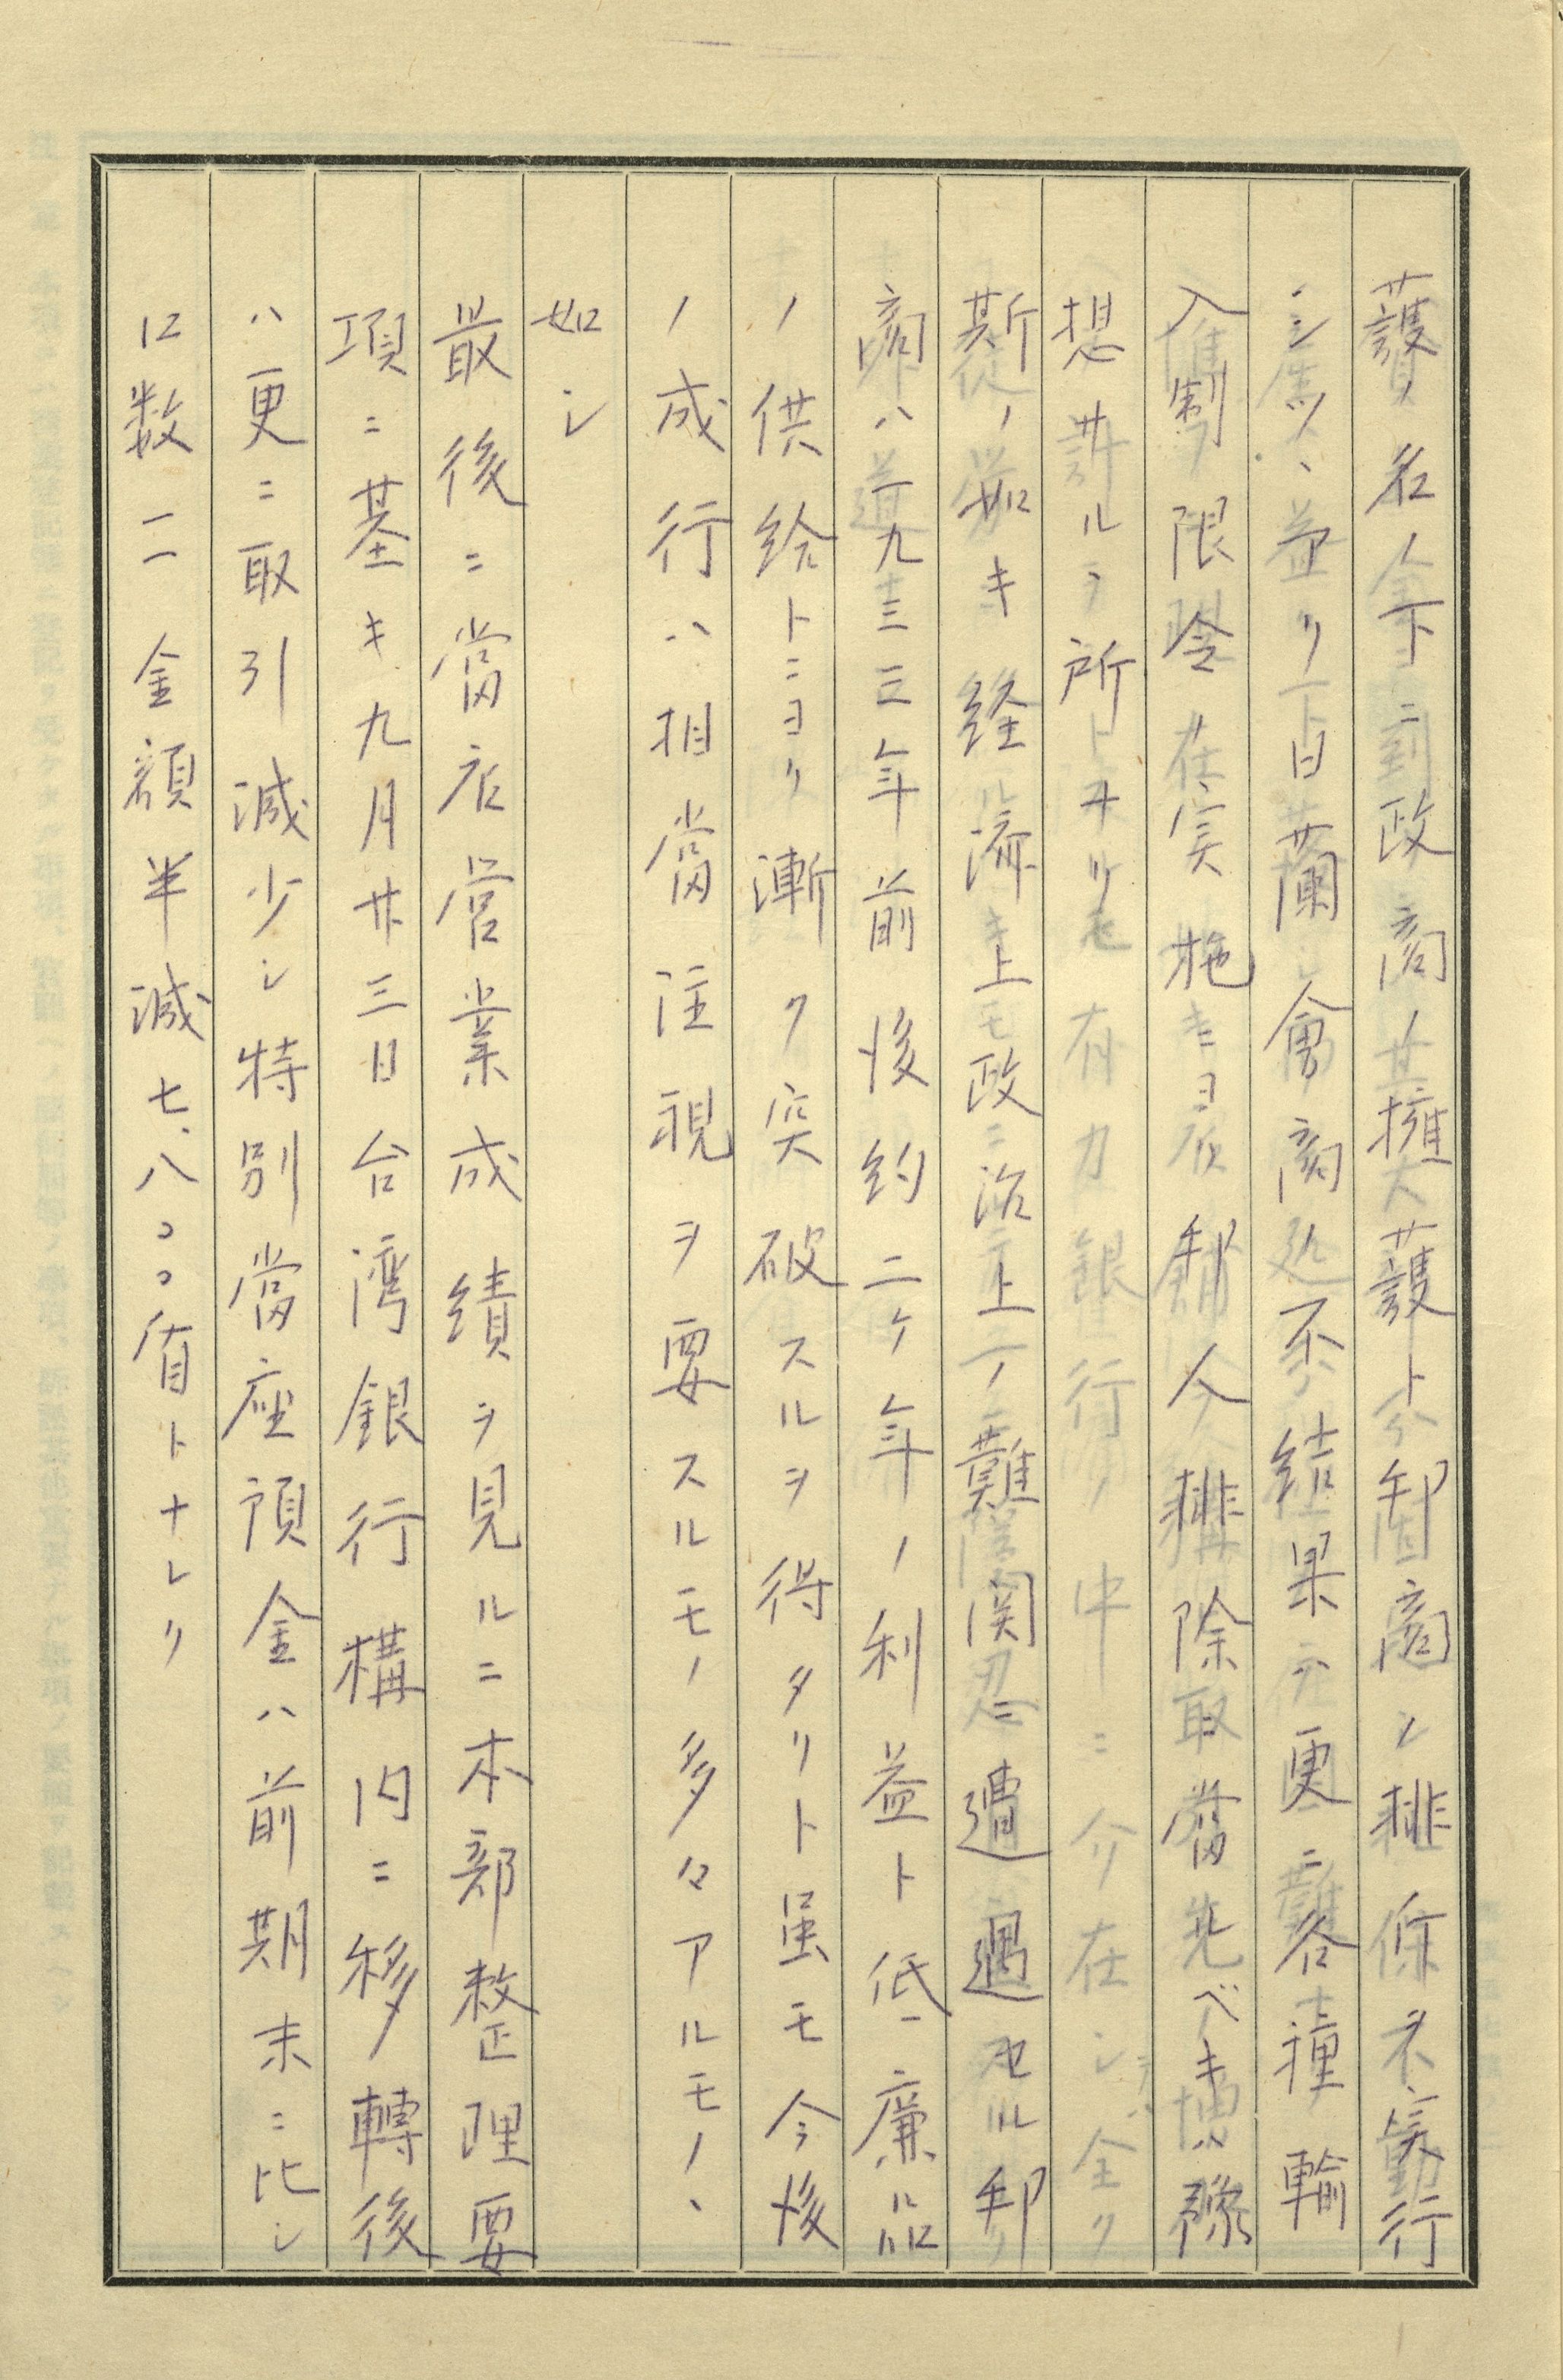 護ノ名ノ下ニ政商ノ擁護ト邦商ノ排除ヲ実行
シツヽ益リ日蘭會商不結果ニ更ニ各種輸
入制限令ノ実施ニヨル邦人排除ニ當ルベキハ豫
想サルヽ所ナリ
斯ノ如キ経済上政治上ノ難関ニ遭遇セル邦
商ハ一九三三年前後約二ケ年ノ利益ト低廉品
ノ供給トニヨリ漸ク突破スルヲ得タリト虽モ今後
ノ成行ハ相當注視ヲ要スルモノ多々アルモノヽ
如シ
最後ニ當店営業成績ヲ見ルニ本部整理要
項ニ基キ九月廿三日台湾銀行構内ニ移轉後
ハ更ニ取引減少シ特別當座預金ハ前期末ニ比シ
口数二一金額半減七、八〇〇盾トナレリ